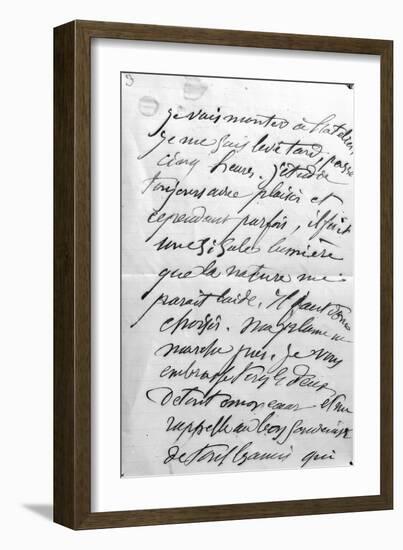 3
je vais monter à l'atelier,
je me suis levé tard, passé
cinq heures. J'étudie
toujours avec plaisir et
cependant parfois, il fait
une si sale lumière
que la nature me
parait laide. Il faut donc
choisir. Ma plume ne
marche pas. Je vous
embrasse tous les deux
de tout mon cœur et me
rappelle au bon souvenir
de tous les amis qui